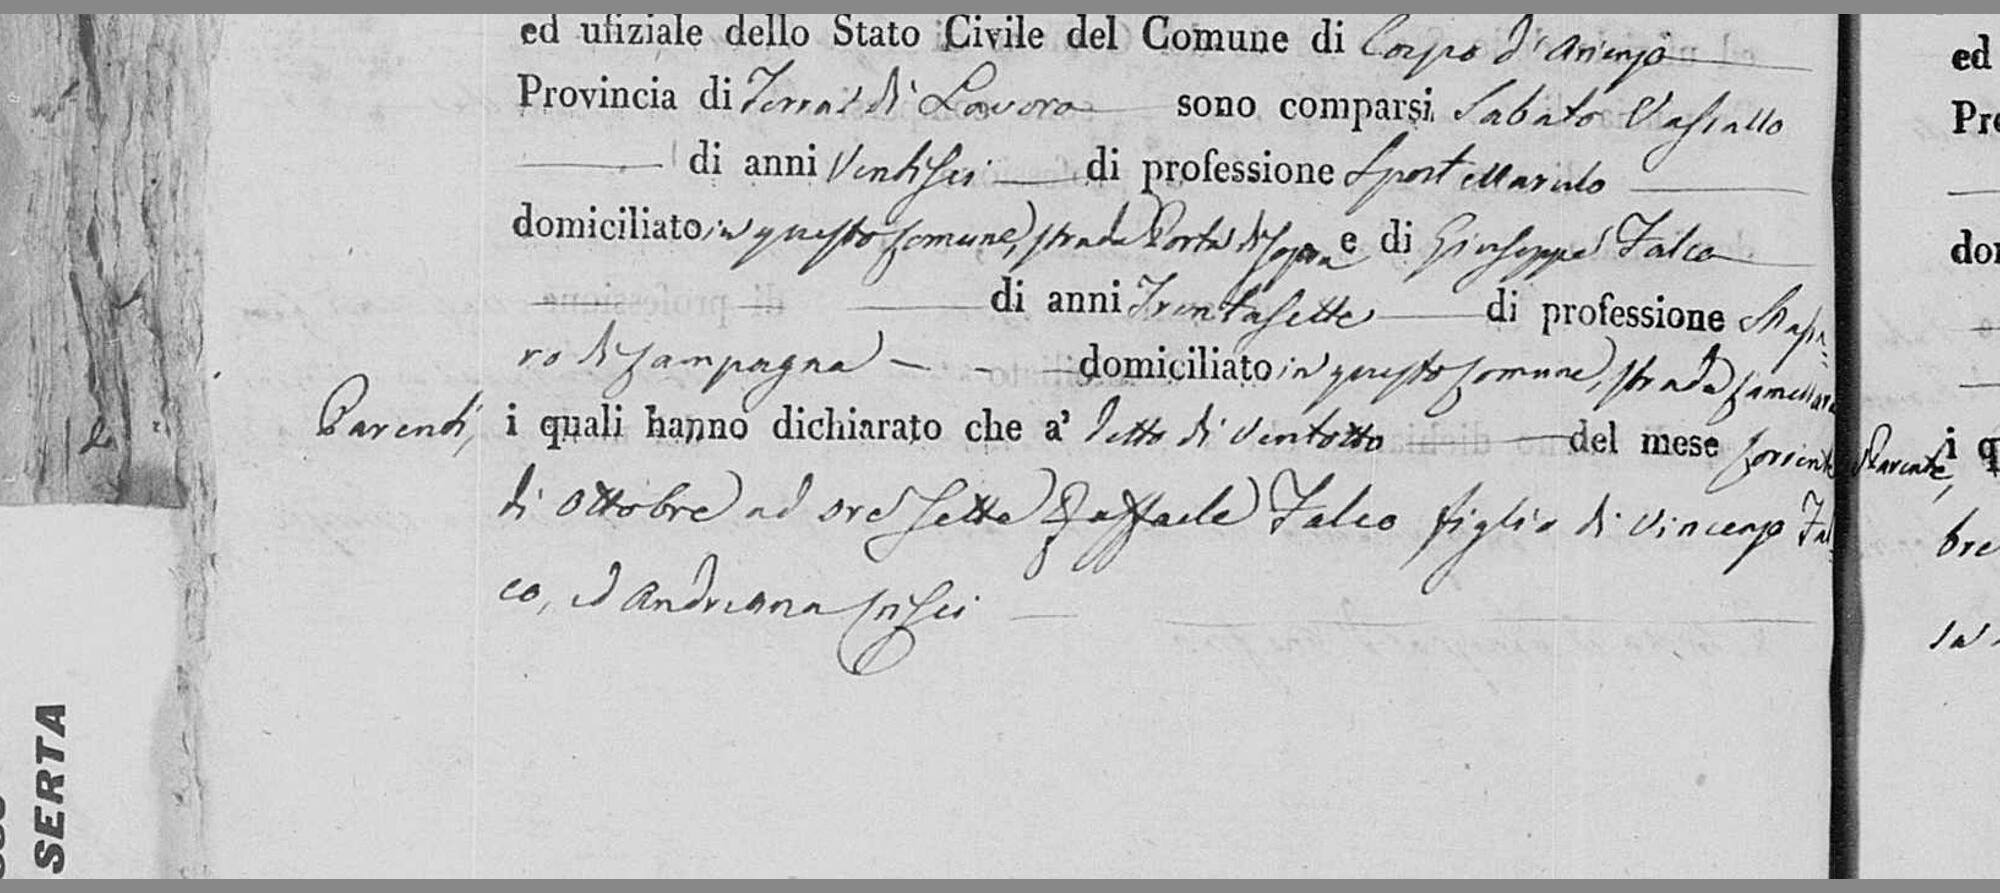 ed ufiziale dello Stato Civile del Comune di Corpo d'Arienzo
Provincia di Terra di Lavoro sono comparsi Sabato Vassallo
di anni Ventisei di professione
domiciliato in questo Comune, strada Porta di Sopra e di Giuseppe Falco
di anni Trentasette di professione
ro di Campagna domiciliato in questo Comune, strada
Parenti, i quali hanno dichiarato che a' detto dì ventotto del mese corrente
di Ottobre ad ore sette Raffaele Falco figlio di Vincenzo Fal
co, ed Andreana Crisci
SERTA
ed
Parente, i q
bre